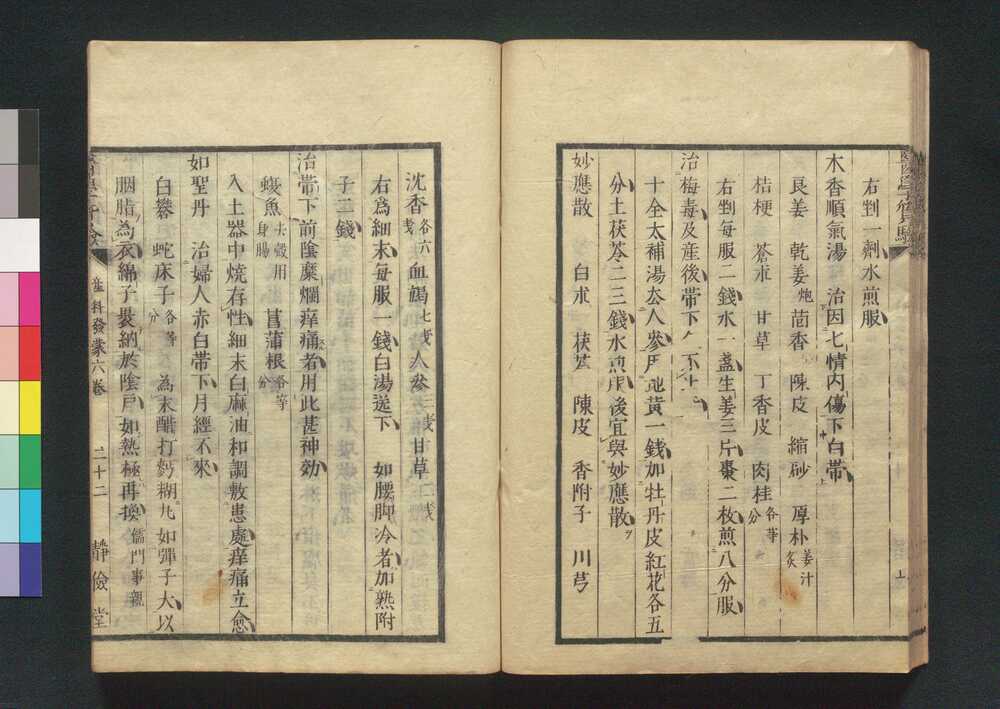 右剉一劑水煎服
木香順氣湯　治因七情内傷下白帶
良姜　乾姜炮　茴香　陳皮　縮砂　厚朴姜汁炙
桔梗　蒼朮　甘草　丁香皮　肉桂各等分
右剉每服二錢水一盞生姜三斤棗二枚煎八分服
治梅毒及産後帶下
十全大補湯去人參用地黄一錢加牡丹皮紅花各五
分土茯苓二三錢水煎用後宜與妙應散
妙應散　白朮　茯苓　陳皮　香附子　川芎
沈香各六戔　血竭七戔　人參三戔　甘草二戔
右爲細末每服一錢白湯送下　如腰脚冷者加熟附
子三錢
治帶下前陰糜爛痒痛者用此甚神効
蝮魚去殼用身腸　菖蒲根各等分
入土器中燒存性細末白麻油和調敷患處痒痛立愈
如聖丹　治婦人赤白帶下月經不來
白礬　蛇床子各等分　為末醋打麪糊丸如彈子大以
胭脂為衣綿子裹納於陰戶如熱極再換儒門事親
産科發蒙六卷　二十二　靜儉堂